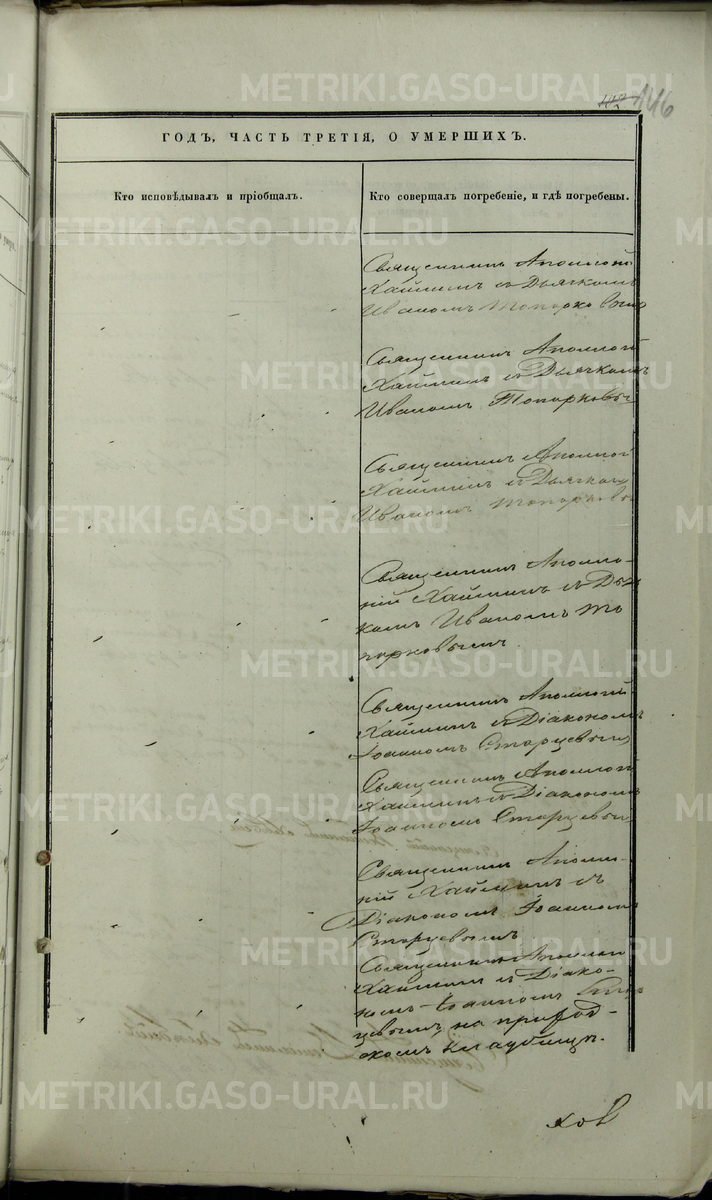 146
ГОДЪ, ЧАСТЬ ТРЕТІЯ, О УМЕРШИХЪ.
Кто исповѣдывалъ и пріобщалъ.
Кто совершалъ погребеніе, и гдѣ погребены.
Священникъ Аполлоній
Хаминъ съ Дьячкомъ
Иваномъ Топорковымъ
Священникъ Аполлоній
Хаминъ съ Дьячкомъ
Иваномъ Топорковы
Священникъ Аполлоній
Хаминъ съ Дьячкомъ
Иваномъ Топорковы
Священникъ Аполло-
ній Хаминъ съ Дья
комъ Иваномъ То
порковымъ
Священникъ Аполлоній
съ Діакономъ
Іоанномъ Старцевымъ
Священникъ Аполлоній
съ Діакономъ
Іоанномъ Старцевы
Священникъ Аполло-
ній съ
Діакономъ Іоанномъ
Старцевымъ
Священникъ Аполлоній
съ Діако-
номъ Іоанномъ Стар
цевымъ на приход-
скомъ кладбищѣ.
METRIKI.GASO-URAL.RU